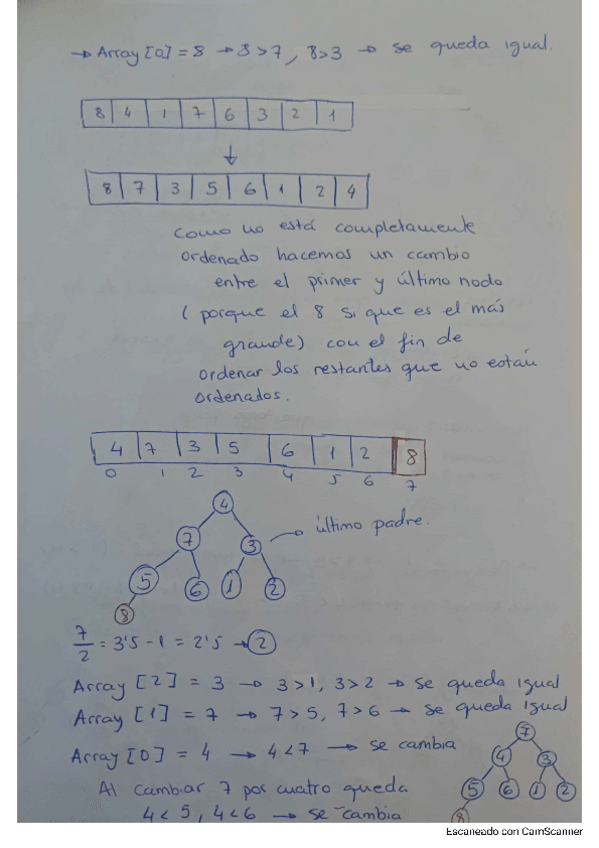 → Array [0] = 8 → 8 > 7, 8 > 3 → se queda igual.
8 4 1 7 6 3 2 1
8 7 3 5 6 1 2 4
Como no está completamente
ordenado hacemos un cambio
entre el primer y último nodo
( porque el 8 si que es el más
grande) con el fin de
ordenar los restantes que no están
ordenados.
4 7 3 5 6 1 2 8
0 1 2 3 4 5 6 7
4
7 3 → último padre.
5 6 1 2
8
7/2 = 3'5 - 1 = 2'5 → 2
Array [2] = 3 → 3 > 1, 3 > 2 → se queda igual
Array [1] = 7 → 7 > 5, 7 > 6 → se queda igual
Array [0] = 4 → 4 < 7 → se cambia
Al cambiar 7 por cuatro queda
4 < 5, 4 < 6 → se cambia
7
4 3
5 6 1 2
8
Escaneado con CamScanner